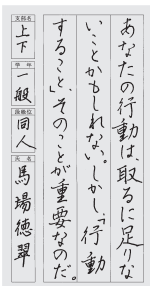 あなたの行動は、取るに足りな
いことかもしれない。しかし、「行動
すること」、そのことが重要なのだ。
支部名
上下
学年
一般
段級位
同人
氏名
馬場徳翠